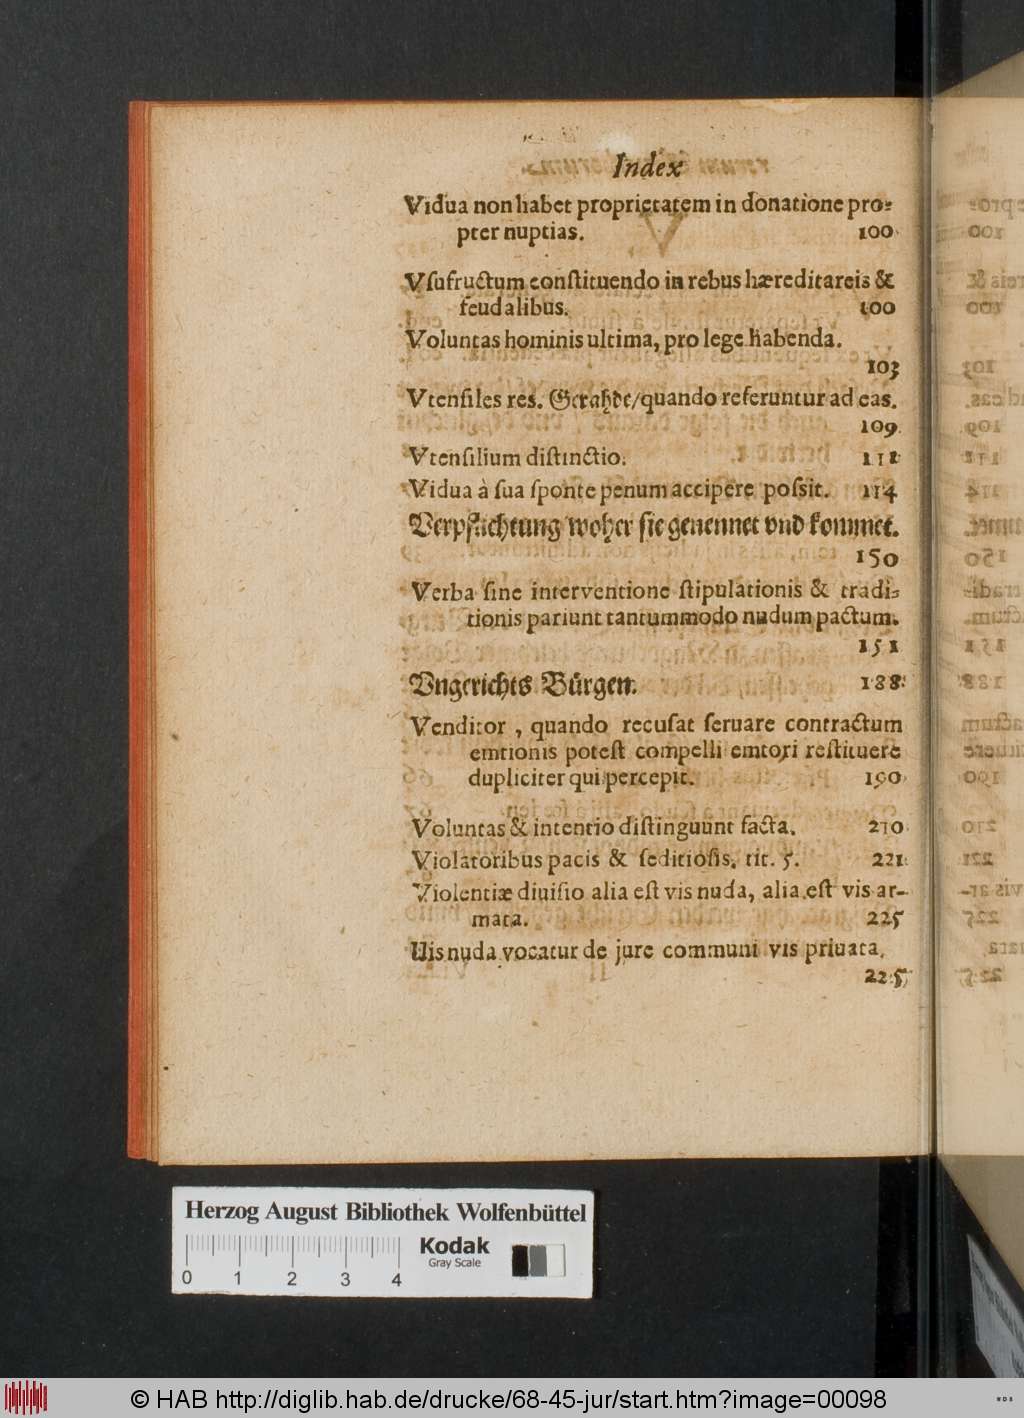 Index
Vidua non habet proprietatem in donatione pro-
pter nuptias. 100
Vſufructum conſtituendo in rebus hæreditareis &
feudalibus. 100
Voluntas hominis ultima, pro lege habenda.
103
Vtenſiles res. Gerahde/quando referuntur ad eas.
109
Vtenſilium diſtinctio. 111
Vidua à ſua ſponte penum accipere poſsit. 114
Verpflichtung woher ſie genennet vnd kommet.
150
Verba ſine interventione ſtipulationis & tradi-
tionis pariunt tantummodo nudum pactum.
151
Vngerichts Bürgen. 188
Venditor, quando recuſat ſeruare contractum
emtionis poteſt compelli emtori reſtituere
dupliciter qui percepit. 190
Voluntas & intentio diſtinguunt facta. 210
Violatoribus pacis & ſeditioſis. tit. 5. 221
Violentiæ diuiſio alia eſt vis nuda, alia eſt vis ar-
mata. 225
Uis nuda vocatur de jure communi vis priuata.
225
Herzog August Bibliothek Wolfenbüttel
Kodak
Gray Scale
0 1 2 3 4
© HAB http://diglib.hab.de/drucke/68-45-jur/start.htm?image=00098